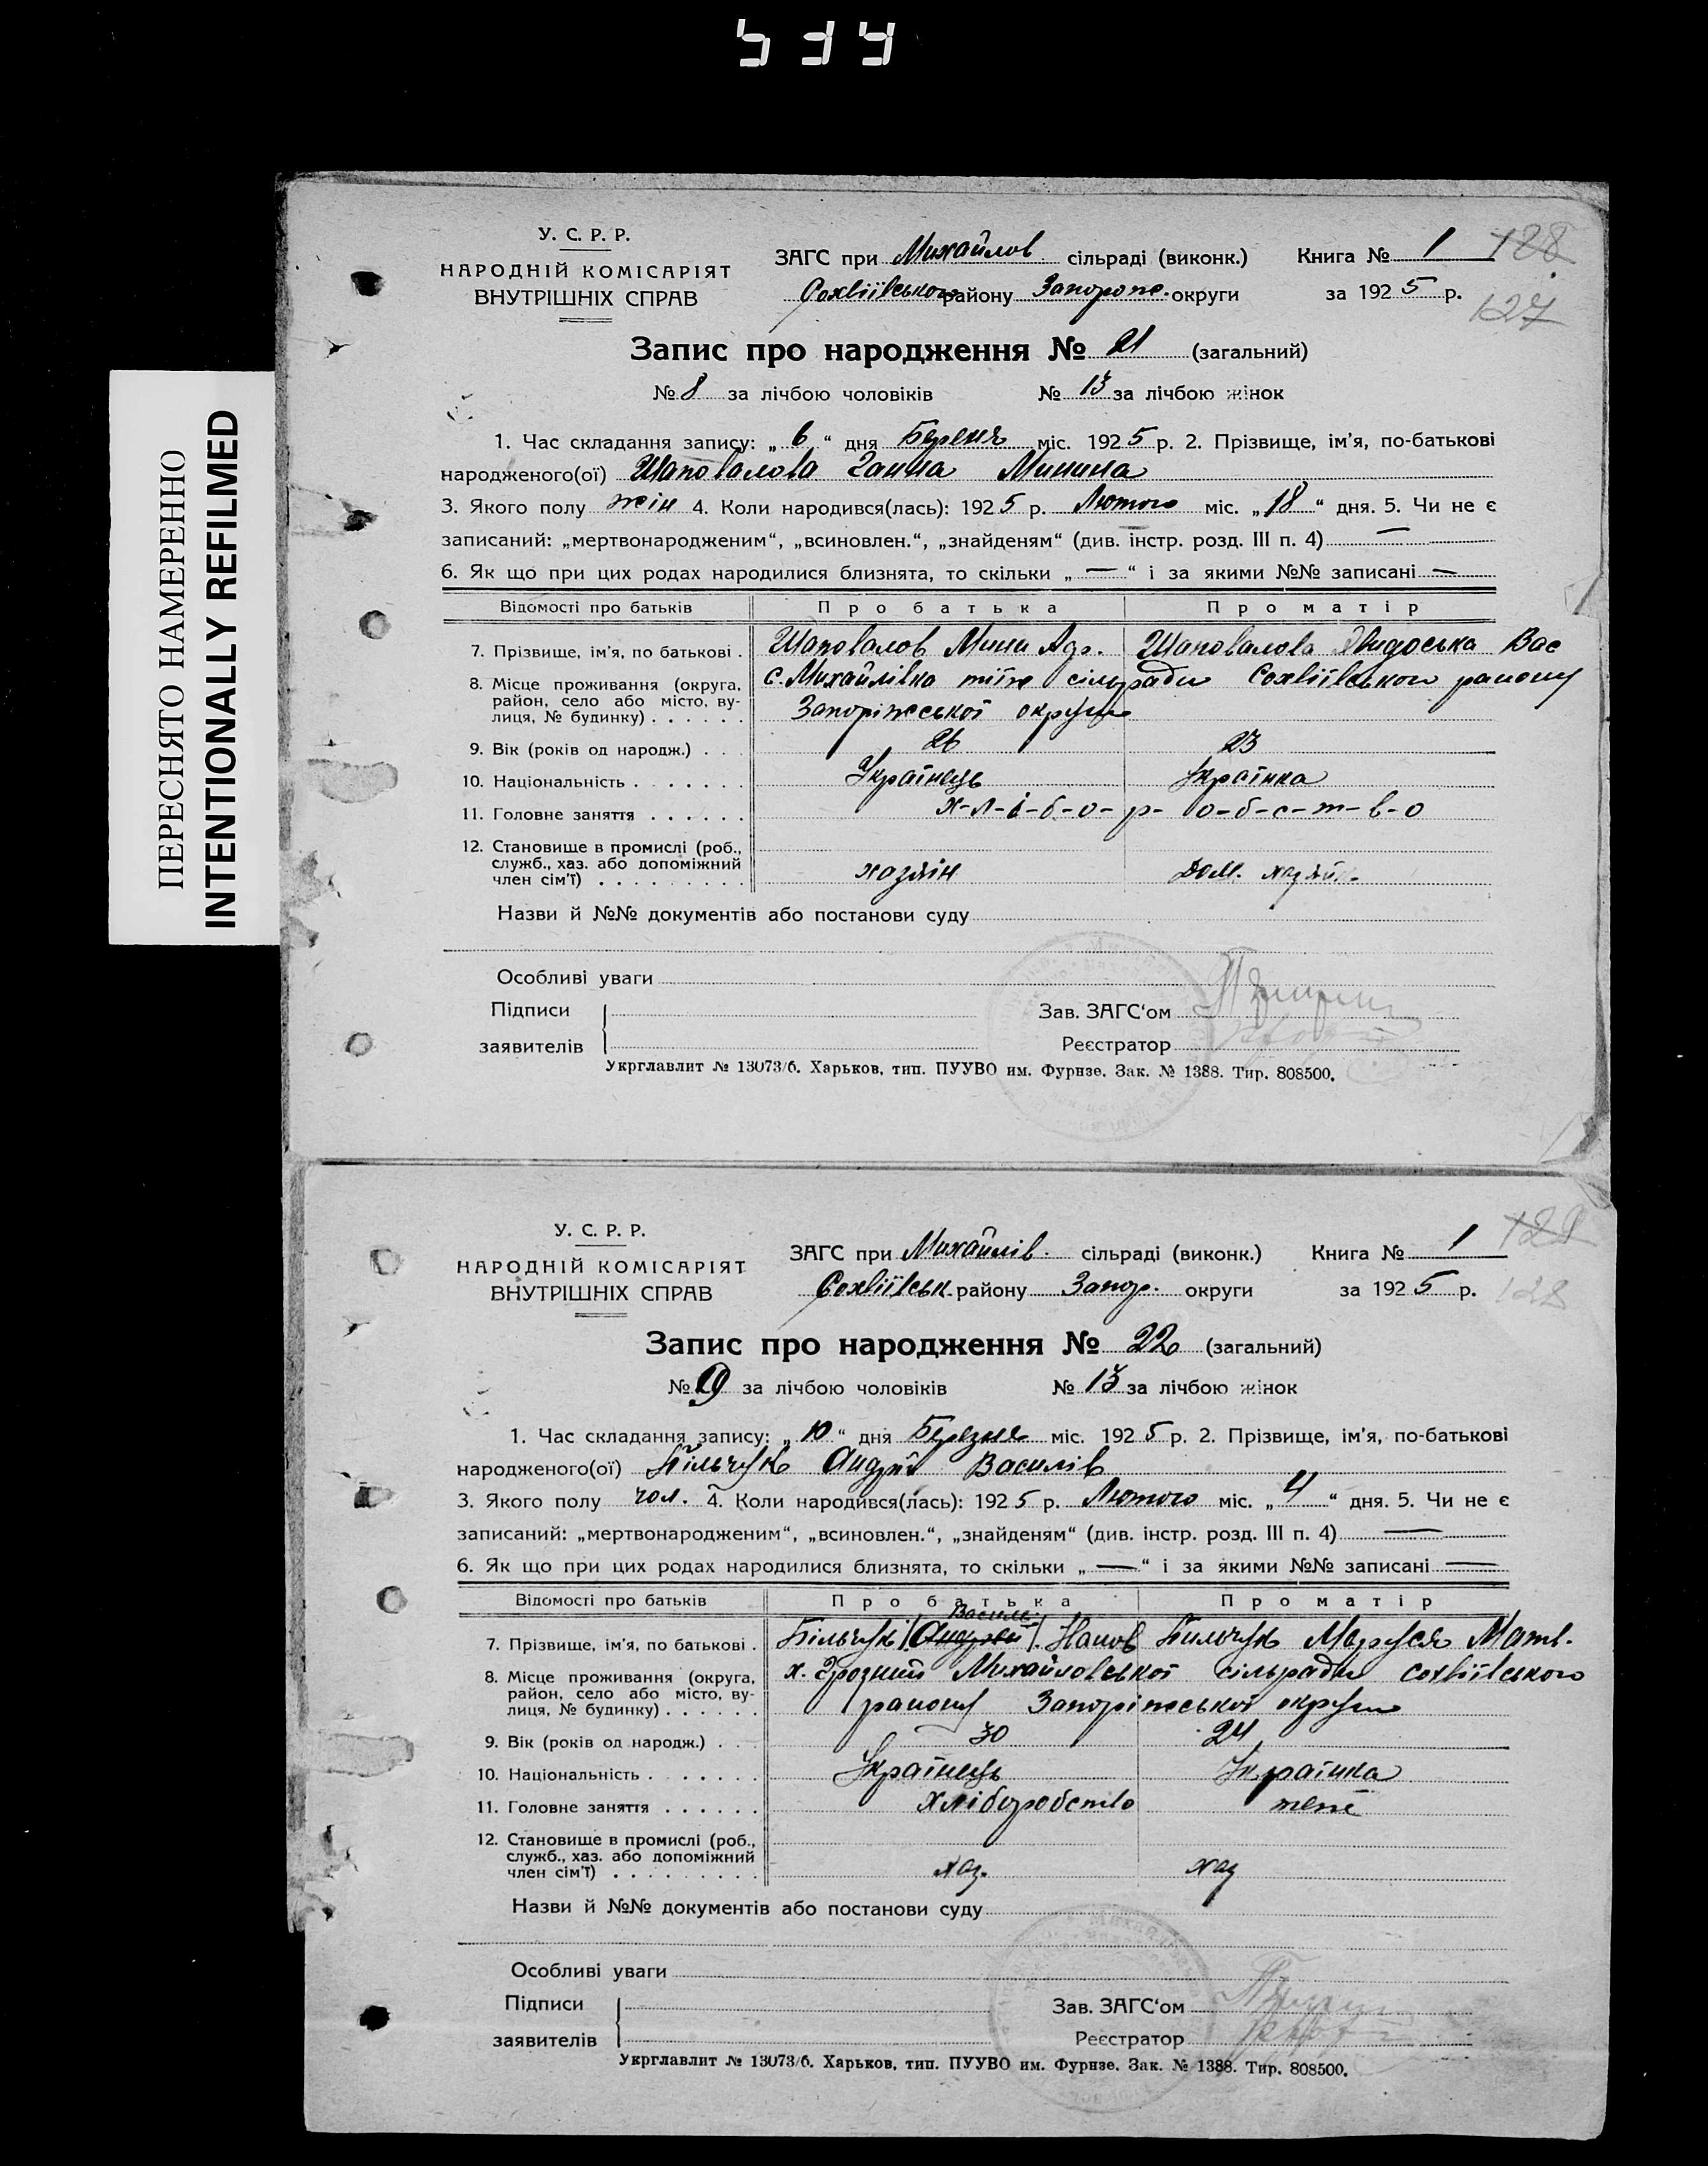 534
ПЕРЕСНЯТО НАМЕРЕННО
INTENTIONALLY REFILMED
У. С. Р. Р.
НАРОДНІЙ КОМІСАРІЯТ
ВНУТРІШНІХ СПРАВ
ЗАГС при Михайлов. сільраді (виконк.) Книга № 1 128
Сохвіївського району Запорож. округи за 1925 р. 127
Запис про народження № 21 (загальний)
№ 8 за лічбою чоловіків № 13 за лічбою жінок
1. Час складання запису: „ 6 “ дня Березня міс. 1925 р. 2. Прізвище, ім’я, по-батькові
народженого(ої) Шаповалова Ганна Минина
3. Якого полу жін 4. Коли народився(лась): 1925 р. Лютого міс. „18“ дня. 5. Чи не є
записаний: „мертвонародженим“, „всиновлен.“, „знайденям“ (див. інстр. розд. III п. 4) —
6. Як що при цих родах народилися близнята, то скільки „ — “ і за якими №№ записані —
Відомості про батьків Про батька Про матір
7. Прізвище, ім’я, по батькові . Шаповалов Мина Шаповалова Вас
8. Місце проживання (округа, район, село або місто, ву-лиця, № будинку) . . . . . . с. Михайлівка тііж сільради Сохвіївського району
Запоріжської округи
9. Вік (років од народж.) . . . 26 23
10. Національність . . . . . . . Українець Українка
11. Головне заняття . . . . . . х-л-і-б-о-р-о-б-с-т-в-о
12. Становище в промислі (роб., служб., хаз. або допоміжний член сім’ї) . . . . . . . . . хазяін дом. хазяй.
Назви й №№ документів або постанови суду
Особливі уваги
Підписи
заявителів
Зав. ЗАГС‘ом
Реєстратор
Укрглавлит № 13073/6. Харьков, тип. ПУУВО им. Фурнзе. Зак. № 1388. Тир. 808500.
У. С. Р. Р.
НАРОДНІЙ КОМІСАРІЯТ
ВНУТРІШНІХ СПРАВ
ЗАГС при Михайлів. сільраді (виконк.) Книга № 1 129
Сохвіївськ. району Запор. округи за 1925 р. 128
Запис про народження № 22 (загальний)
№ 9 за лічбою чоловіків № 13 за лічбою жінок
1. Час складання запису: „ 10 “ дня Березня міс. 1925 р. 2. Прізвище, ім’я, по-батькові
народженого(ої) Більчук Андрій Василів
3. Якого полу чол. 4. Коли народився(лась): 1925 р. Лютого міс. „ 4 “ дня. 5. Чи не є
записаний: „мертвонародженим“, „всиновлен.“, „знайденям“ (див. інстр. розд. III п. 4) —
6. Як що при цих родах народилися близнята, то скільки „ — “ і за якими №№ записані —
Відомості про батьків Про батька Про матір
Василь
7. Прізвище, ім’я, по батькові . Більчук Андрій Більчук Маруся Матв.
8. Місце проживання (округа, район, село або місто, ву-лиця, № будинку) . . . . . . х. Грозний Михайловської сільради Сохвіївського
району Запоріжської округи
9. Вік (років од народж.) . . . 30 24
10. Національність . . . . . . . Українець Українка
11. Головне заняття . . . . . . хліборобство теж
12. Становище в промислі (роб., служб., хаз. або допоміжний член сім’ї) . . . . . . . . . хаз. хаз
Назви й №№ документів або постанови суду
Особливі уваги
Підписи
заявителів
Зав. ЗАГС‘ом
Реєстратор
Укрглавлит № 13073/6. Харьков, тип. ПУУВО им. Фурнзе. Зак. № 1388. Тир. 808500.